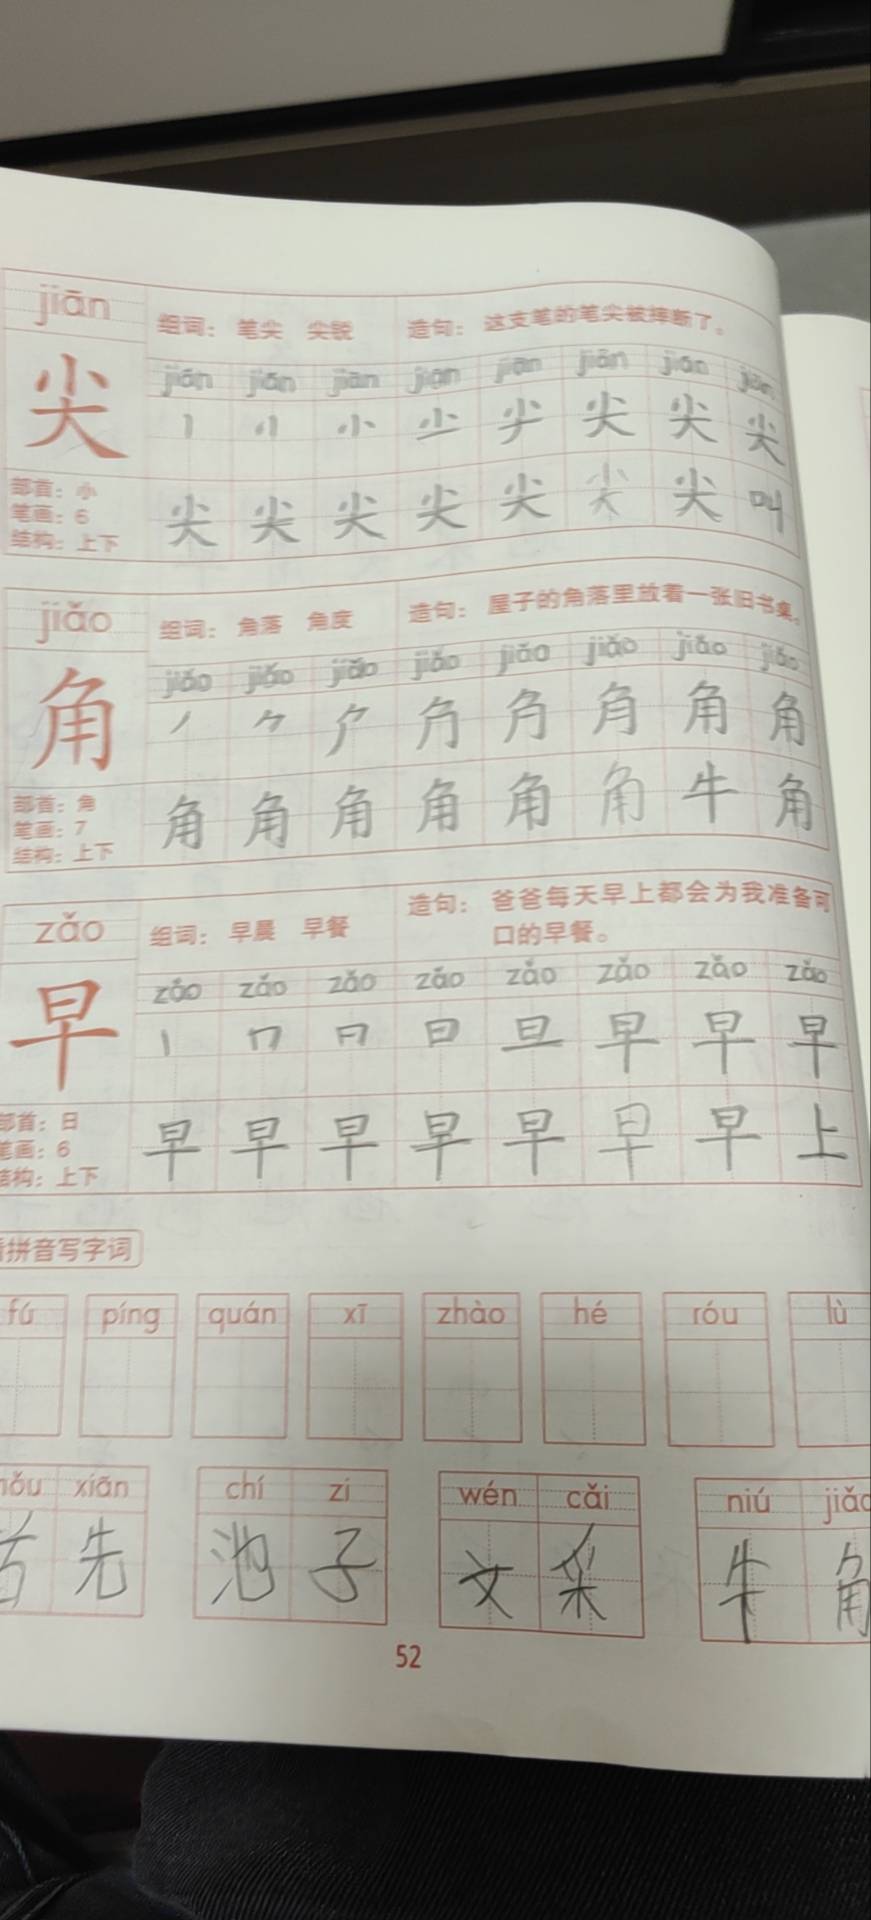 jiān 组词： 笔尖 尖锐 造句： 这支笔的笔尖被摔断了。
jiān jiān jiān jiān jiān jiān jiān jiān
尖 尖 尖 尖
部首：小 尖 尖 尖 尖 尖 尖 尖 叫
笔画：6
结构：上下
jiǎo 组词： 角落 角度 造句： 屋子的角落里放着一张旧书桌。
jiǎo jiǎo jiǎo jiǎo jiǎo jiǎo jiǎo jiǎo
角 角 角
部首：角 角 角 角 角 角 角 牛 角
笔画：7
结构：上下
zǎo 组词： 早晨 早餐 造句： 爸爸每天早上都会为我准备可
口的早餐。
zǎo zǎo zǎo zǎo zǎo zǎo zǎo zǎo
早 日 旦 早 早 早
部首：日 早 早 早 早 早 早 早 上
笔画：6
结构：上下
拼音写字词
fú píng quán xī zhào hé róu lù
xiān chí zi wén cǎi niú jiǎo
首 先 池 子 文 采 牛 角
52